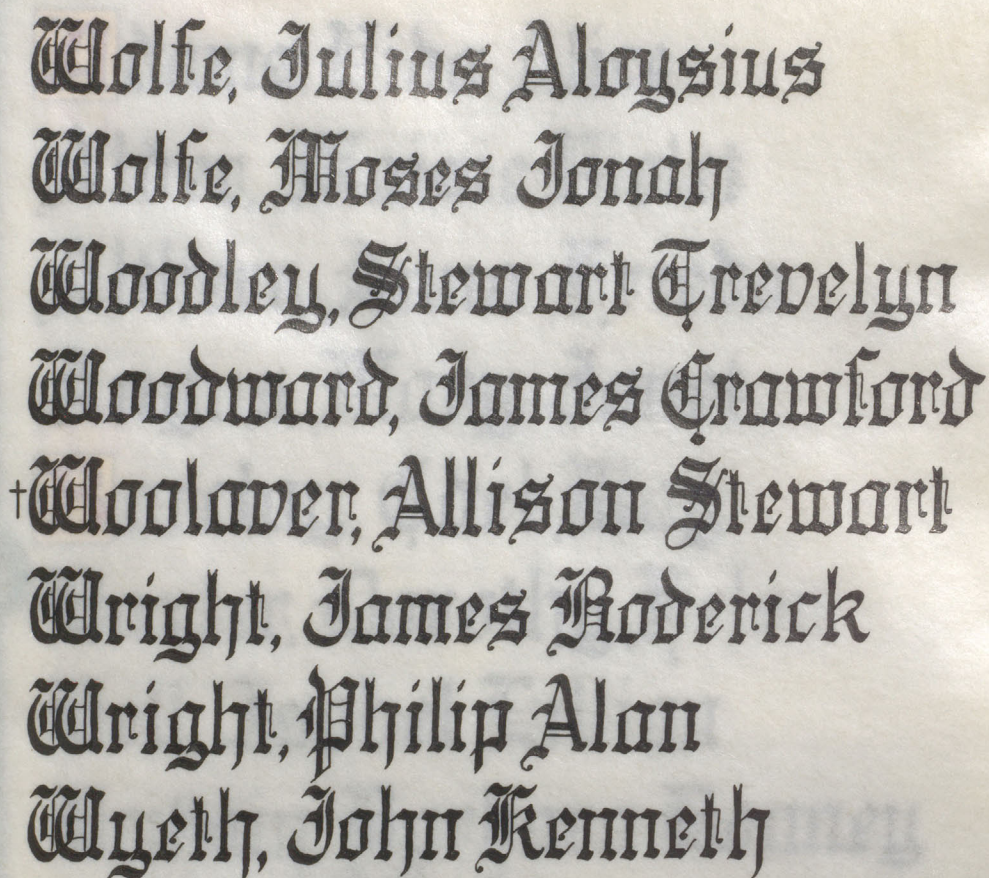 Wolfe, Julius Aloysius
Wolfe, Moses Jonah
Woodley, Stewart Trevelyn
Woodward, James Crawford
†Woolaver, Allison Stewart
Wright, James Roderick
Wright, Philip Alan
Wyeth, John Kenneth